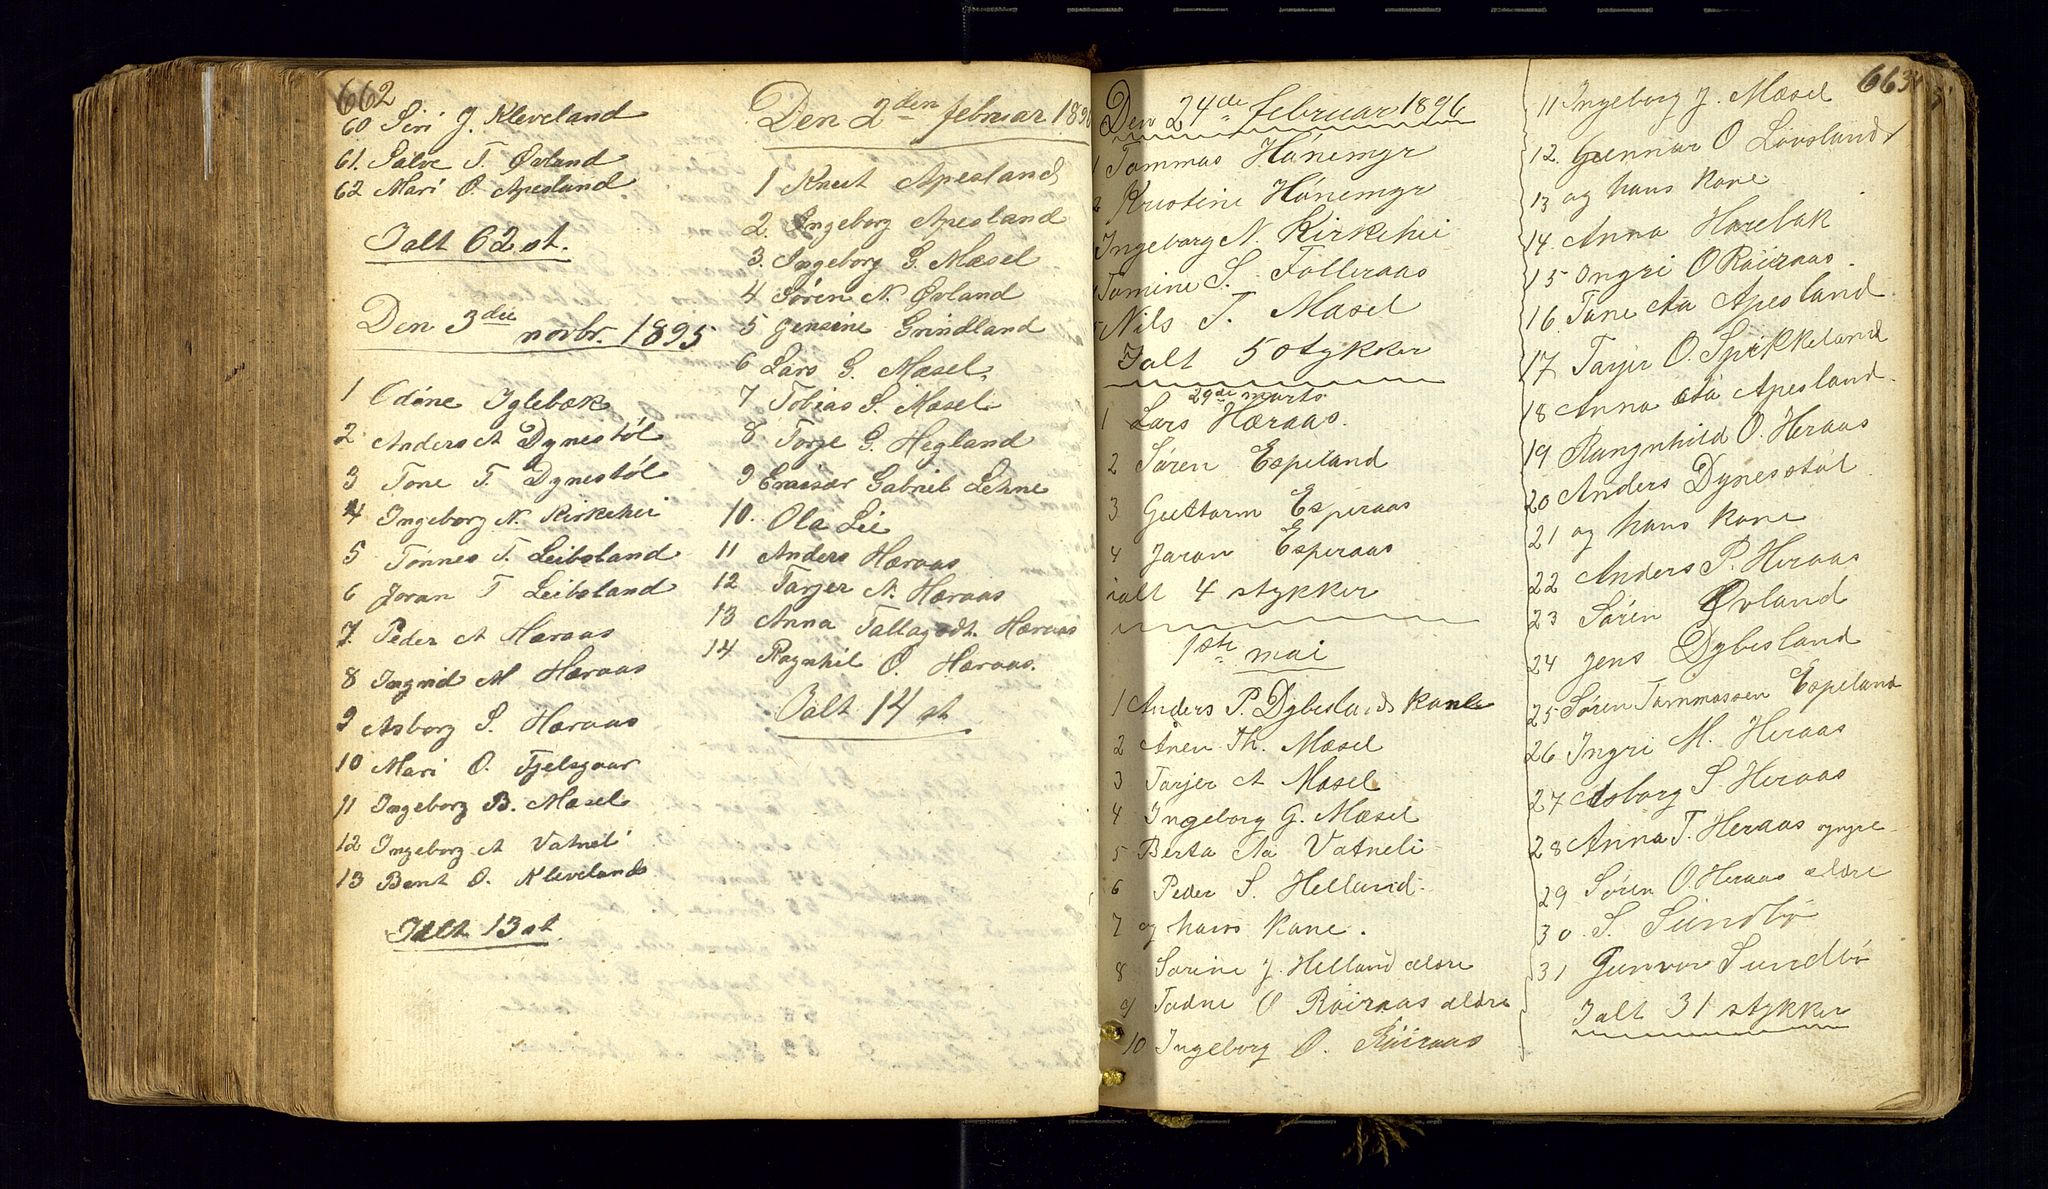 662
60 Siri J. Kleveland
61. Salve T. Øvland
62 Mari O. Apesland
Ialt 62 st.
Den 3die
novbr. 1895
1 Odine Iglebæk
2 Anders A Dynestöl
3 Tone T. Dynestöl
4 Ingeborg N. Kirkehei
5 Tønnes T. Leibsland
6 Joran T Leibsland
7 Peder A Hæraas
8 Ingrid M Hæraas
9 Asborg S. Hæraas
10 Mari O. Fjelsgaar
11 Ingeborg B. Mæsel
12 Ingeborg A Vatneli
13 Bent O. Kleveland
Ialt 13 st.
Den 2den februar 189
1 Knut Apesland
2. Ingeborg Apesland
3. Ingeborg G. Mæsel
4 Søren N. Øvland
5 Jensine Grindland
6 Lars G. Mæsel.
7 Tobias S. Mæsel
8 Torje G. Hegland
9 Gabriel Lehne
10. Ola Lie
11 Anders Hæraas
12 Tarjer N. Hæraas
13 Anna Hæraas
14 Ragnhil O. Hæraas.
Ialt 14 st
663
Den 24de februar 1896
1 Tammas Hanemyr
2 Kristine Hanemyr
Ingeborg N. Kirkehei
Tomine S. Folleraas
5 Nils T. Mæsel
Ialt 5 stykker
29de marts
1 Lars Hæraas.
2 Søren Espeland
3 Guttorm Esperaas
4 Joran Esperaas
ialt 4 stykker
1ste mai
1 Anders P. Dybesland
2 Anen Th. Mæsel
3 Tarjer A Mæsel
4 Ingeborg G. Mæsel
5 Berta Aa Vatneli
6 Peder S. Helland.
7 og hans kone.
8 Sorine J. Helland ældre
9 Tadne O Röiraas ældre
10 Ingeborg O. Röiraas
11 Ingeborg J. Mæsel
12. Gunnar O Lövsland
13 og hans kone
14. Anna Harebak
15 Ingri O Röiraas.
16. Tone Aa Apesland.
17 Tarjer O. Spikkeland
18 Anna Aa Apesland.
19 Rangnhild O. Heraas
20 Anders Dynesstøl
21 og hans kone
22 Anders P. Heraas
23 Søren Øvland
24 Jens Dybesland
25 Søren Tammassen Espeland
26 Ingri M. Heraas
27 Asborg S. Heraas
28 Anna T. Heraas yngre
29 Søren O. Heraas ældre
30. S. Sundbö
31 Gunvor Sundbö
Ialt 31 stykker